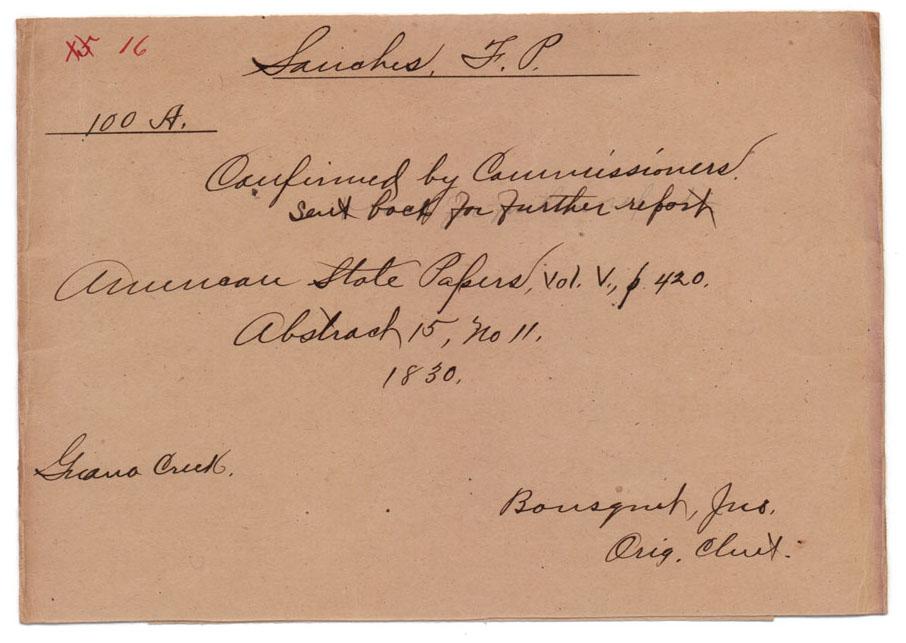 16
Sanches, F. P.
100 A.
Confirmed by Commissioners.
sent back for further report
American State Papers, Vol. V., p. 420.
Abstract 15, No 11.
1830.
Guano Creek.
Bousquet, Jno.
Orig. Clmt.